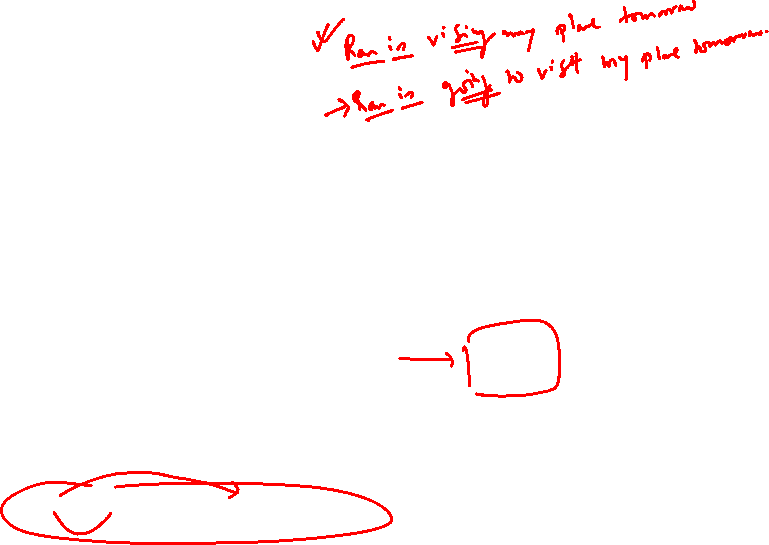 Ram is visiting my place tomorrow
Ram is going to visit my place tomorrow.